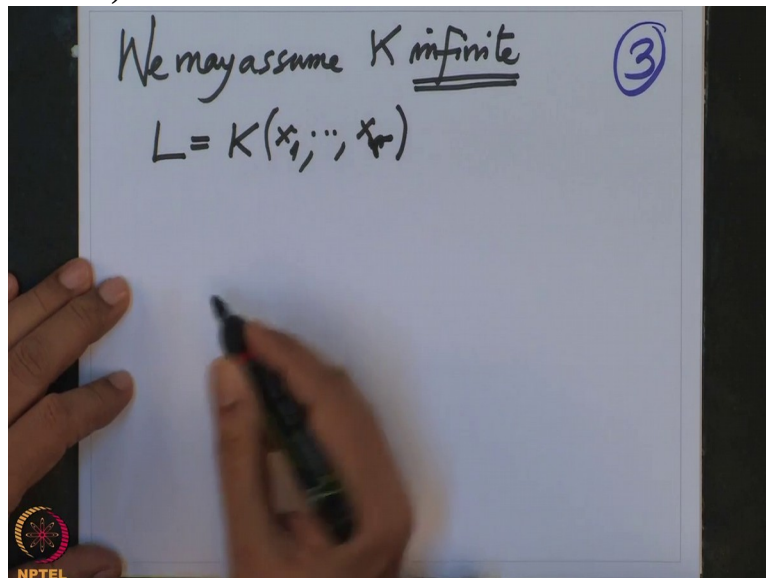 We may assume K infinite
3
L = K(x₁, ..., xₙ)
NPTEL